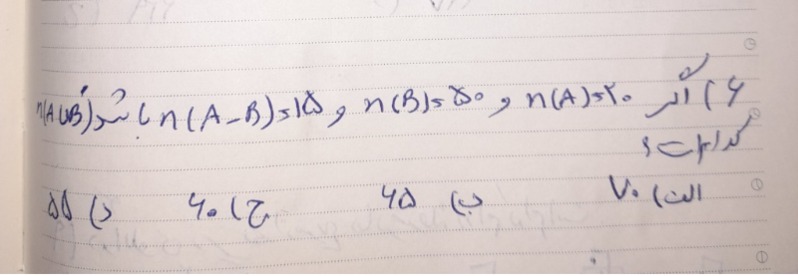 ۶) اگر n(A)=۲۰ و n(B)=۵۰ و n(A-B)=۱۵ باشد، n(A∪B)
کدام است؟
الف) ۷۰ ب) ۶۵ ج) ۶۰ د) ۵۵